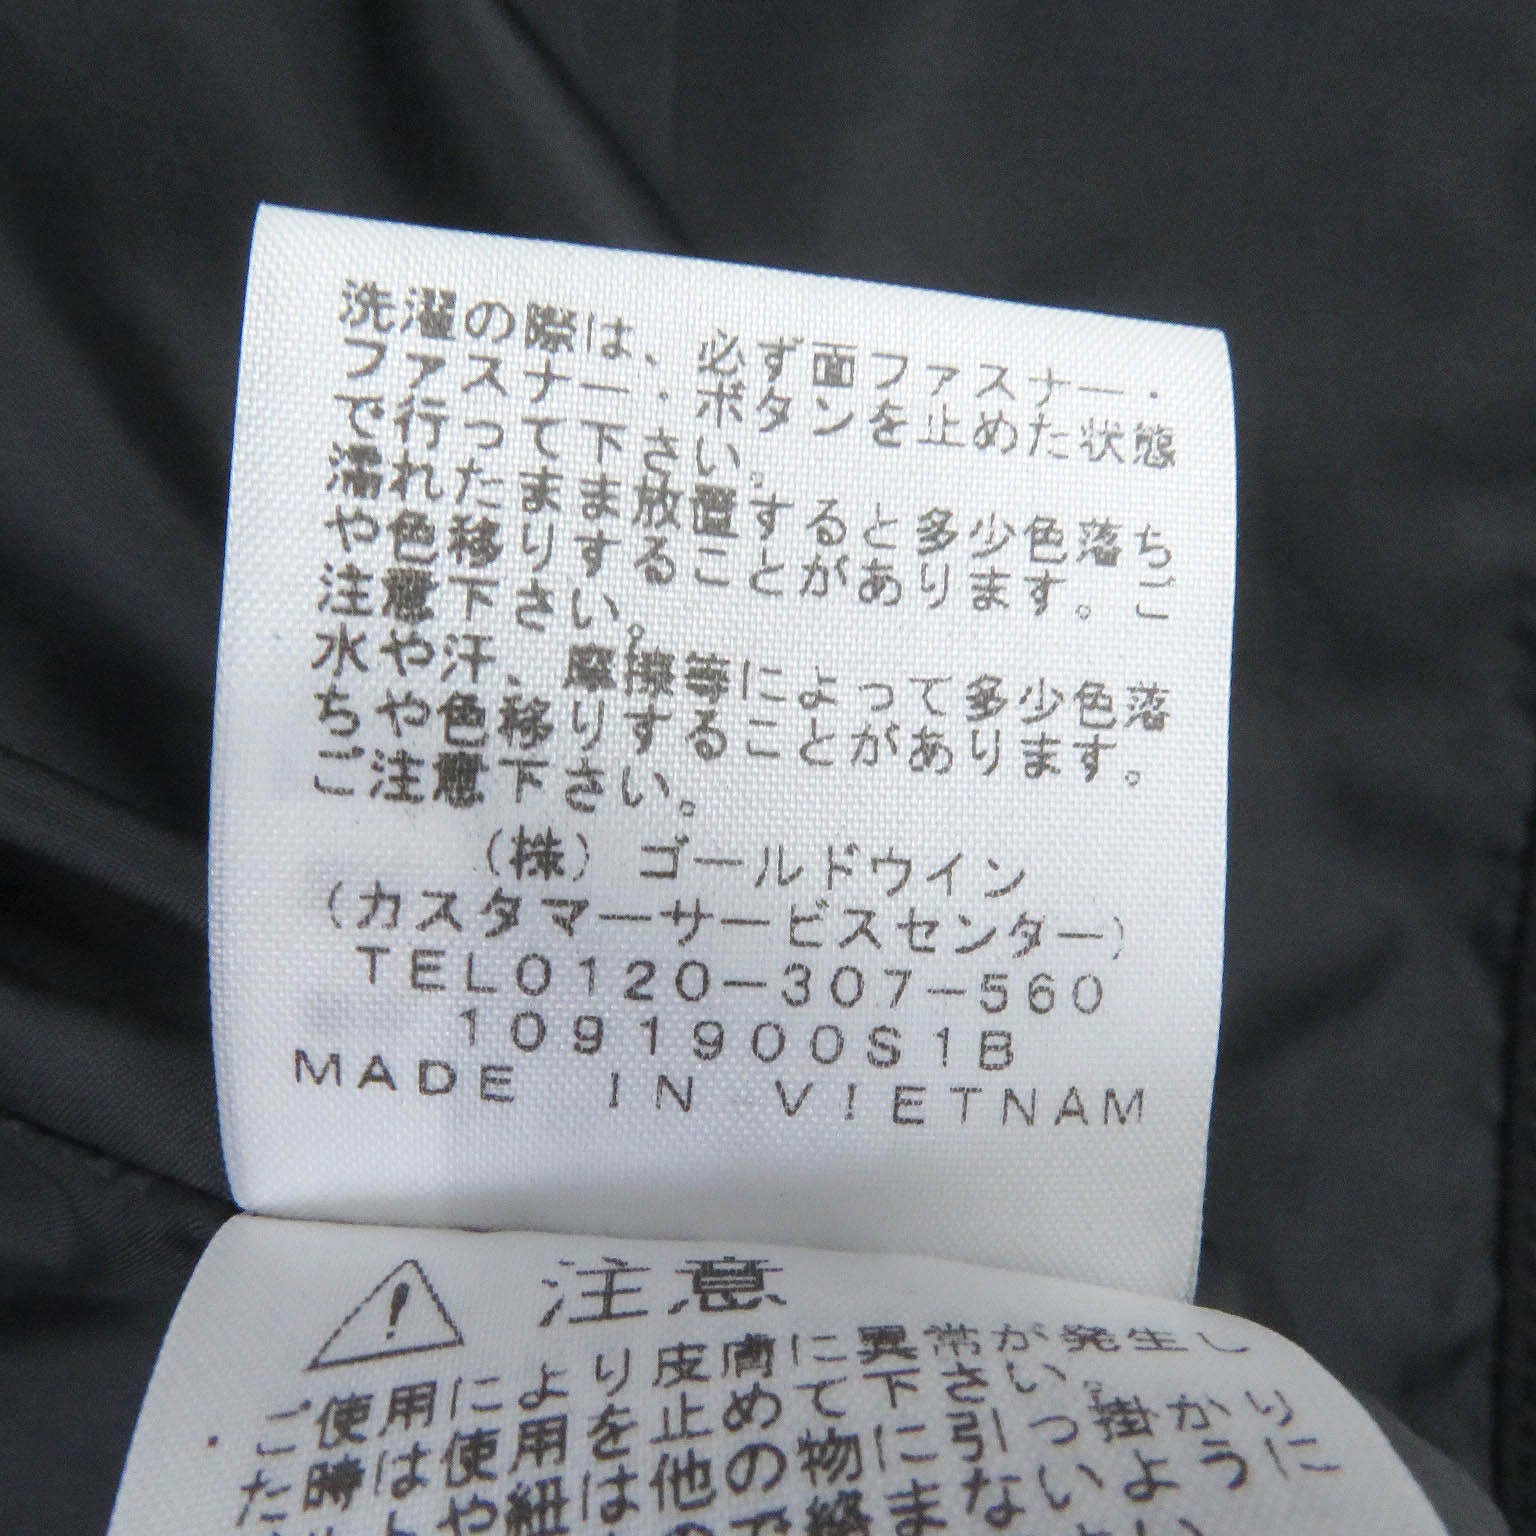 洗濯の際は、必ず面ファスナー・
ファスナー・ボタンを止めた状態
で行って下さい。
濡れたまま放置すると多少色落ち
や色移りすることがあります。ご
注意下さい。
水や汗、摩擦等によって多少色落
ちや色移りすることがあります。
ご注意下さい。
(株)ゴールドウイン
(カスタマーサービスセンター)
TEL0120-307-560
1091900S1B
MADE IN VIETNAM
注意
・ご使用により皮膚に異常が発生し
た時は使用を止めて下さい。
や紐は他の物に引っ掛かり
絡まないように